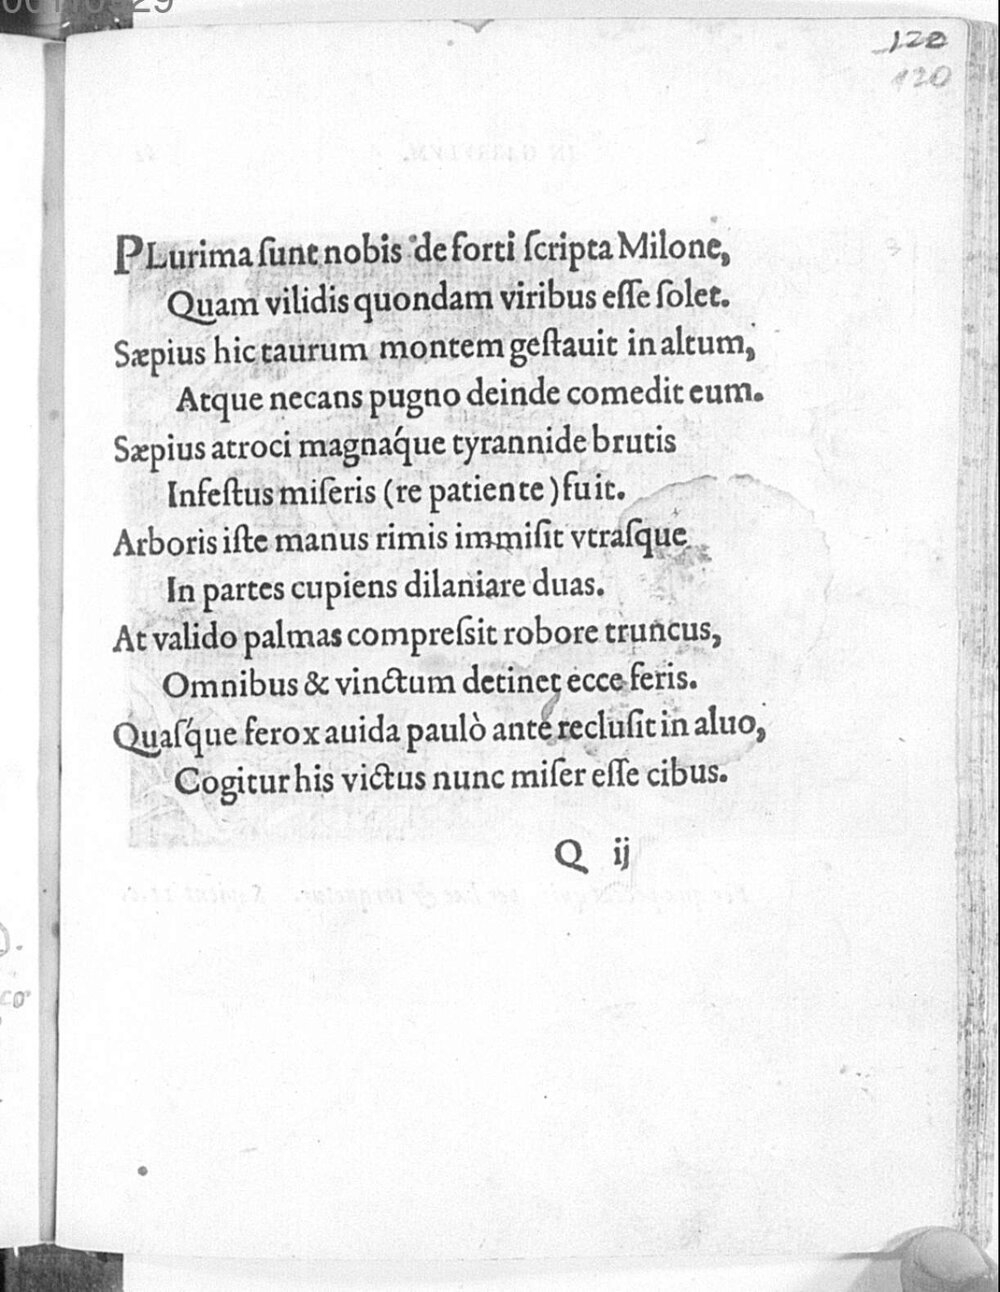 120
120
PLurima ſunt nobis de forti ſcripta Milone,
Quam vilidis quondam viribus eſſe ſolet.
Sæpius hic taurum montem geſtauit in altum,
Atque necans pugno deinde comedit eum.
Sæpius atroci magnáque tyrannide brutis
Infeſtus miſeris (re patiente) fuit.
Arboris iſte manus rimis immiſit vtraſque
In partes cupiens dilaniare duas.
At valido palmas compreſsit robore truncus,
Omnibus & vinctum detinet ecce feris.
Quaſq́ue ferox auida paulò antè recluſit in aluo,
Cogitur his victus nunc miſer eſſe cibus.
Q ij